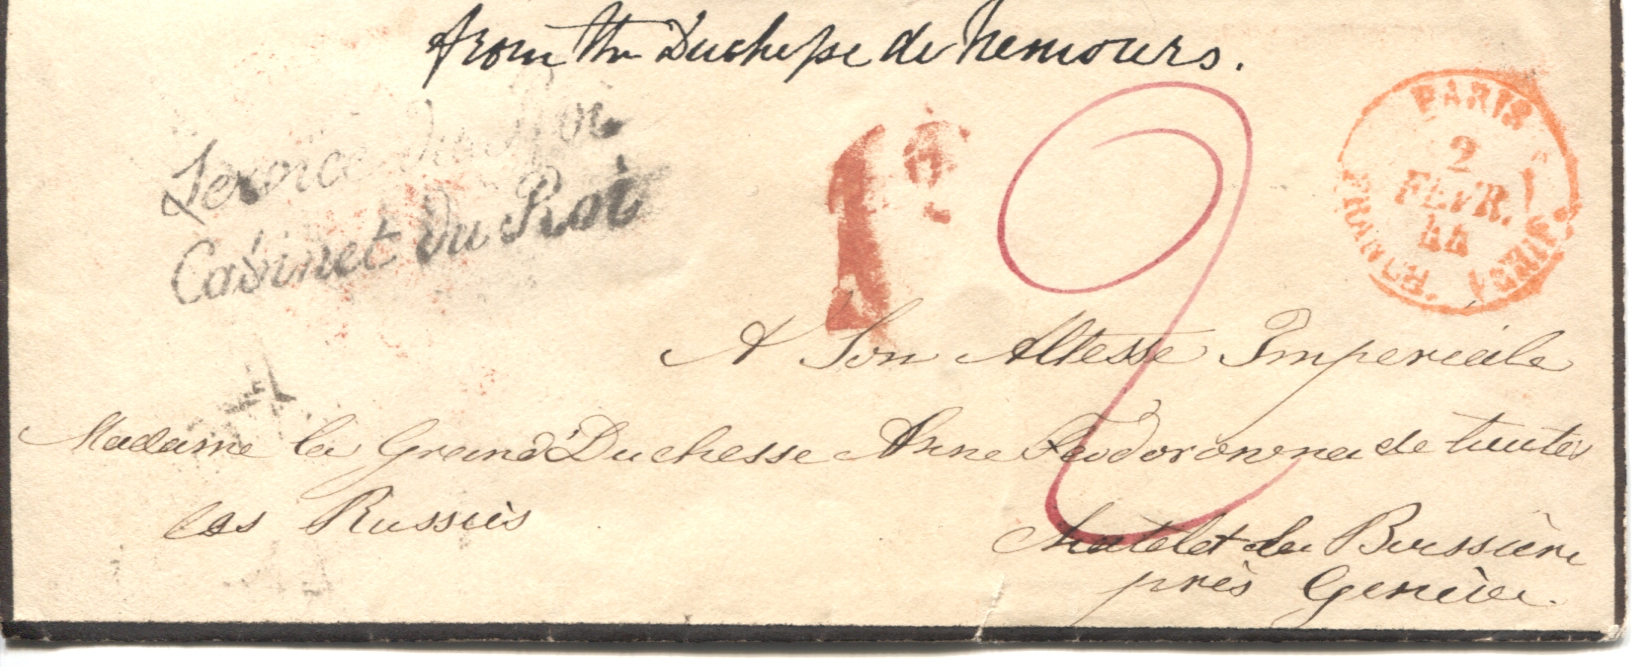 from the Duchesse de Nemours.
Service du Roi
Cabinet du Roi
PARIS
2
FÉVR.
44
A Son Altesse Imperiale
Madame la Grand'Duchesse Anne Feodorowna de toutes
les Russies
Chatelet de la Boissière
près Genève.